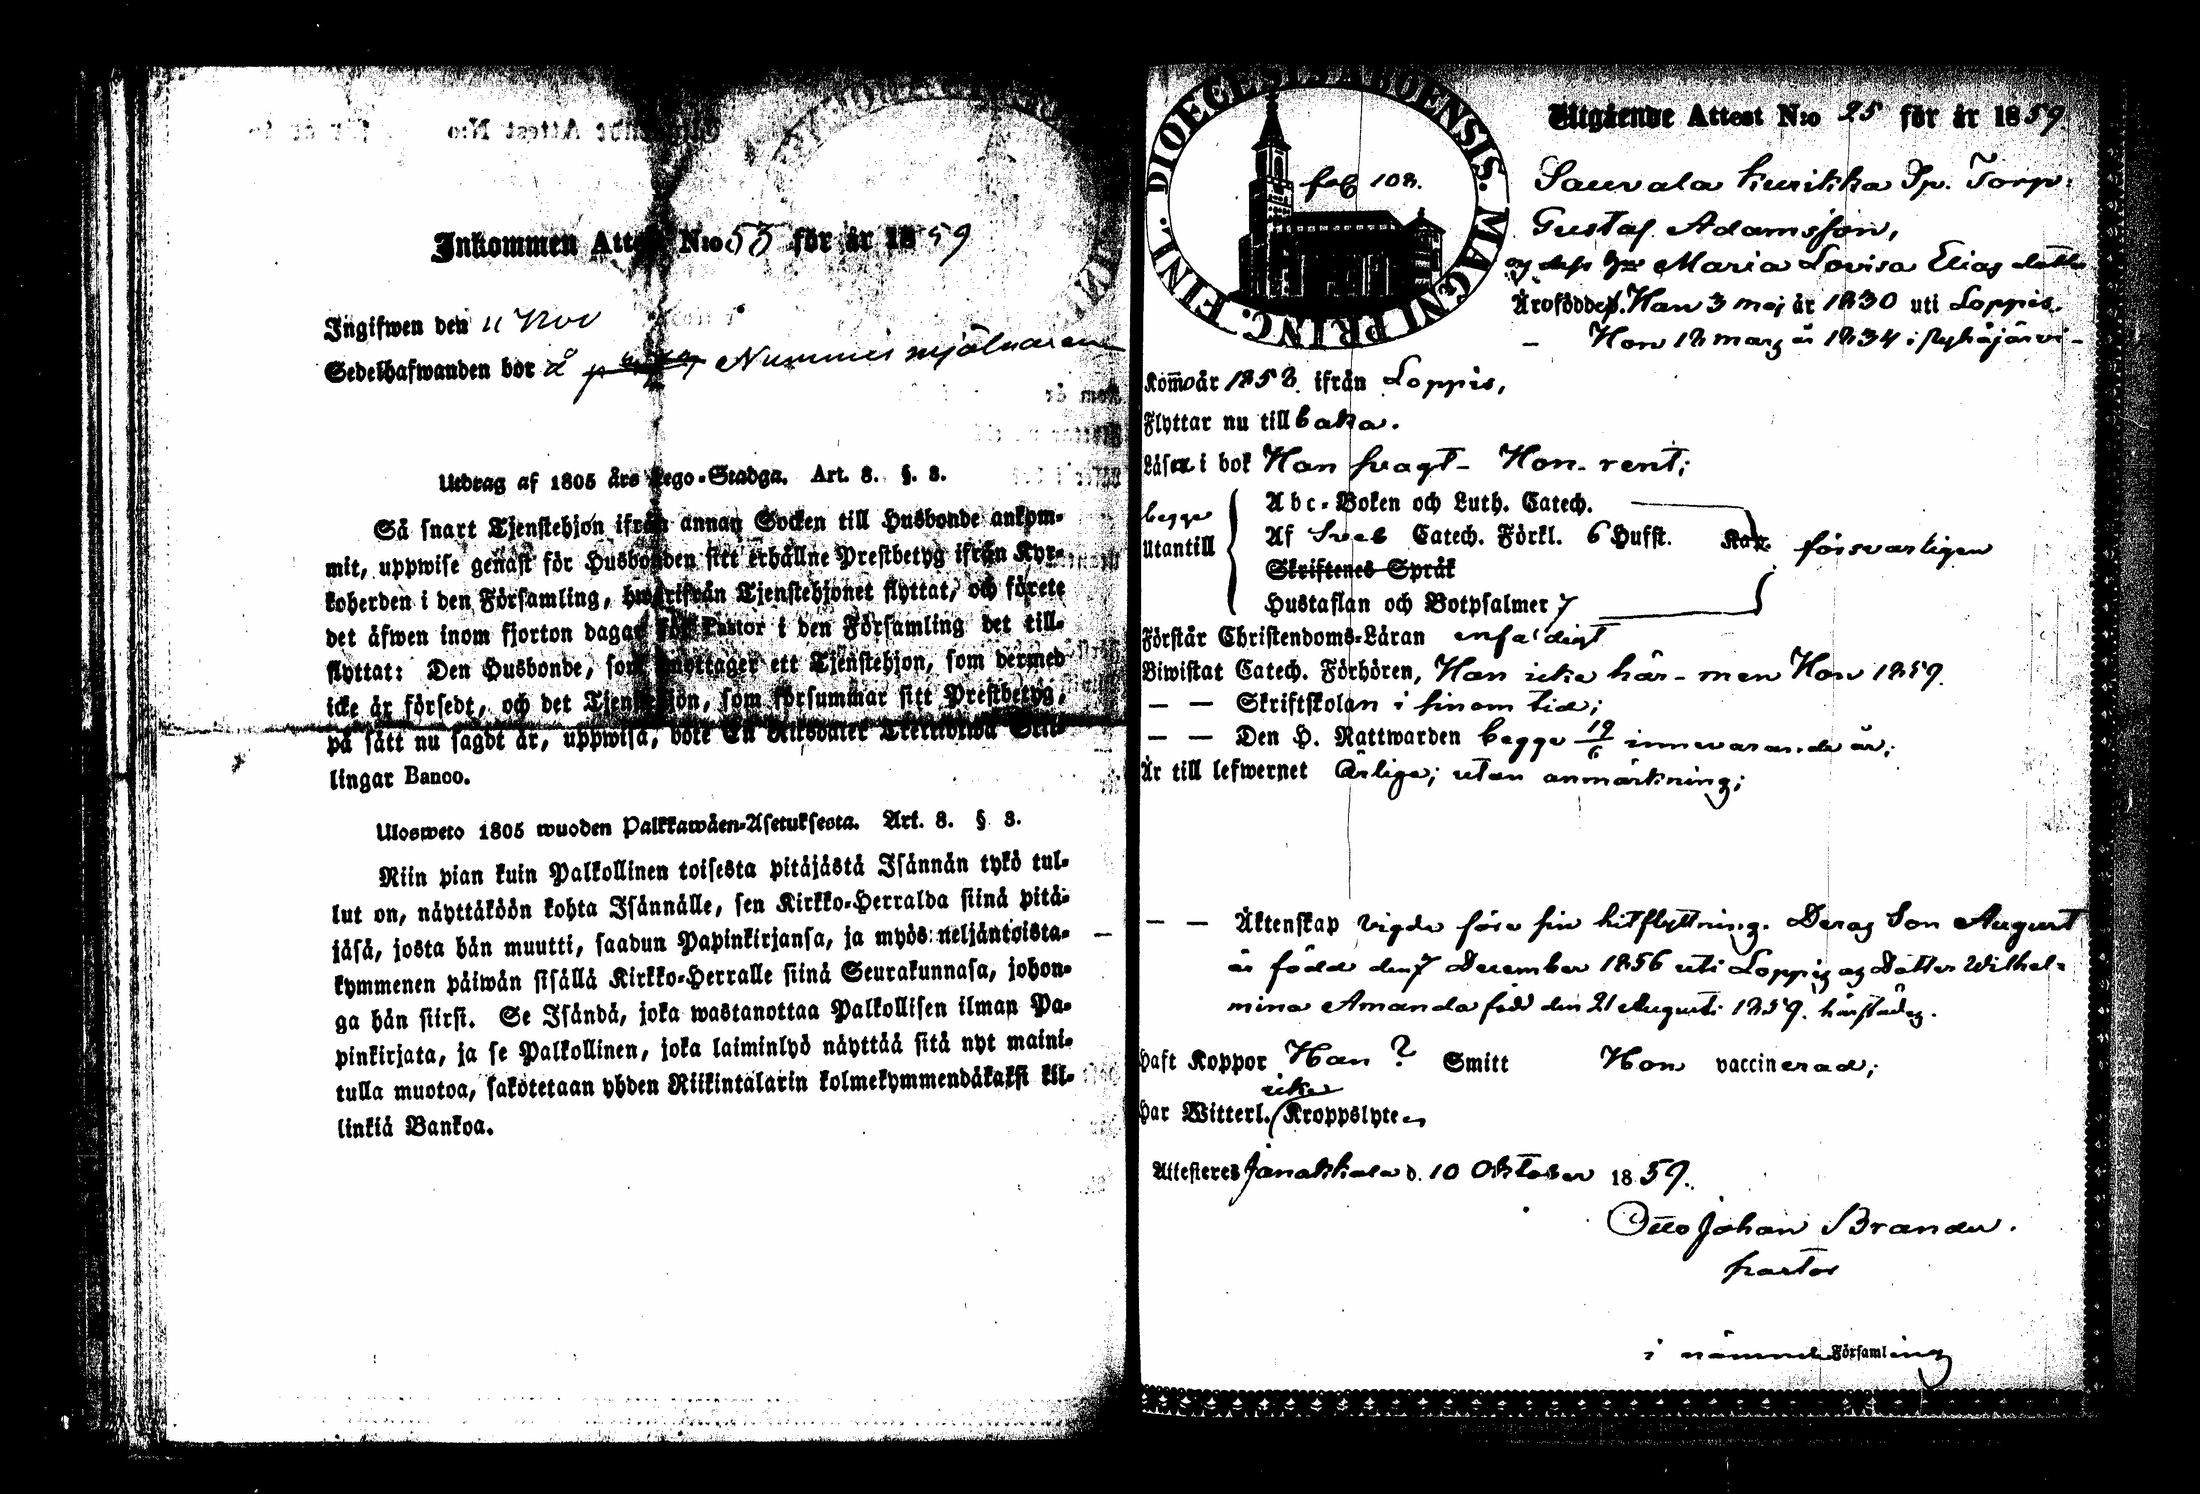 Inkommen Attest N:o 53 för år 1859
Ingifwen den 11 Nov
Sedelhafwanden bor å Nummis mjölnaren
Utdrag af 1805 års Lego-Stadga. Art. 8. §. 3.
Så snart Tjenstehjon ifrån annan Socken till Husbonde ankom-
mit, uppwise genast för Husbonden sitt erhållne Prestbetyg ifrån Kyr-
koherden i den Församling, hwarifrån Tjenstehjonet flyttat, och förete
det äfwen inom fjorton dagar för Pastor i den Församling det till-
flyttat: Den Husbonde, som emottager ett Tjenstehjon, som dermed
icke är försedt, och det Tjenstehjon, som försummar sitt Prestbetyg,
på sätt nu sagdt är, uppwisa, böte En Riksdaler Trettiotwå Skil-
lingar Banco.
Ulosweto 1805 wuoden Palkkawäen-Asetuksesta. Art. 8. § 3.
Niin pian kuin Palkollinen toisesta pitäjästä Isännän tykö tul-
lut on, näyttäköön kohta Isännälle, sen Kirkko-Herralda siinä pitä-
jäsä, josta hän muutti, saadun Papinkirjansa, ja myös neljäntoista-
kymmenen päiwän sisällä Kirkko-Herralle siinä Seurakunnasa, johon-
ga hän siirsi. Se Isändä, joka wastanottaa Palkollisen ilman Pa-
pinkirjata, ja se Palkollinen, joka laiminlyö näyttää sitä nyt maini-
tulla muotoa, sakotetaan yhden Riikintalarin kolmekymmendäkaksi kil-
linkiä Bankoa.
DIOECESIS ABOENSIS. MAGNI PRINC. FINL.
fol 108.
Utgående Attest N:o 25 för år 1859
Sauvala Kurikka Torp:
Gustaf Adamsson,
og dess Maria Lovisa Elias dotter
Äro födde. Han 3 maj år 1830 uti Loppis.
- Hon 18 marz år 1834 i Pyhäjärvi -
Kommo år 1858 ifrån Loppis,
Flyttar nu tillbaka.
Läser i bok Han svagt - Hon - rent;
begge
Utantill
Abc-Boken och Luth. Catech.
Af Sveb Catech. Förkl. 6 Hufst. Kap. försvarligen
Skriftenes Språk
Hustaflan och Botpsalmer 7
Förstår Christendoms-Läran enfaldigt
Biwistat Catech. Förhören, Han icke här - men Hon 1859.
— — Skriftskolan i sinom tid;
— — Den H. Nattwarden begge 19/6 innevarande år;
Är till lefwernet Ärlige; utan anmärkning;
— — Äktenskap vigde före sin hitflyttning. Deras Son August
är född den 7 December 1856 uti Loppis og Dotter Wilhel-
mina Amanda född den 21 Augusti 1859. härstädes.
Haft Koppor Han ? Smitt Hon vaccinerad;
icke
Har Witterl. Kroppslyten
Attesteres Janakkala d. 10 Oktober 1859.
Otto Johan Brander.
pastor
i nämnde Församling